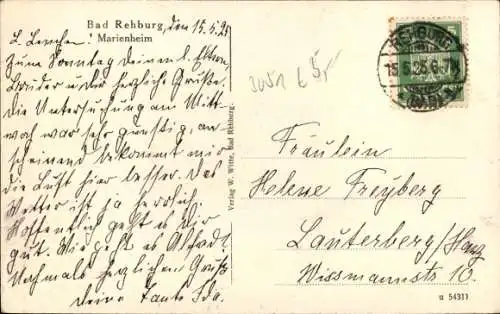 Bad Rehburg, den 15.5.25
Marienheim
L. Lenchen!
Zum Sonntag Deinen l. Eltern,
Bruder u. Dir herzliche Grüße.
Die Untersuchung am Mitt-
woch war sehr günstig, an-
scheinend bekommt mir
die Luft hier besser. Das
Wetter ist ja herrlich.
Hoffentlich geht es Dir
gut. Wie geht es
Nochmals herzlichen Gruß
Deine Tante Ida.
Verlag W. Witte, Bad Rehburg.
REHBURG
15.5.25.6-7
Fräulein
Helene Freyberg
Lauterberg/Harz
Wissmannstr 10.
u 54311